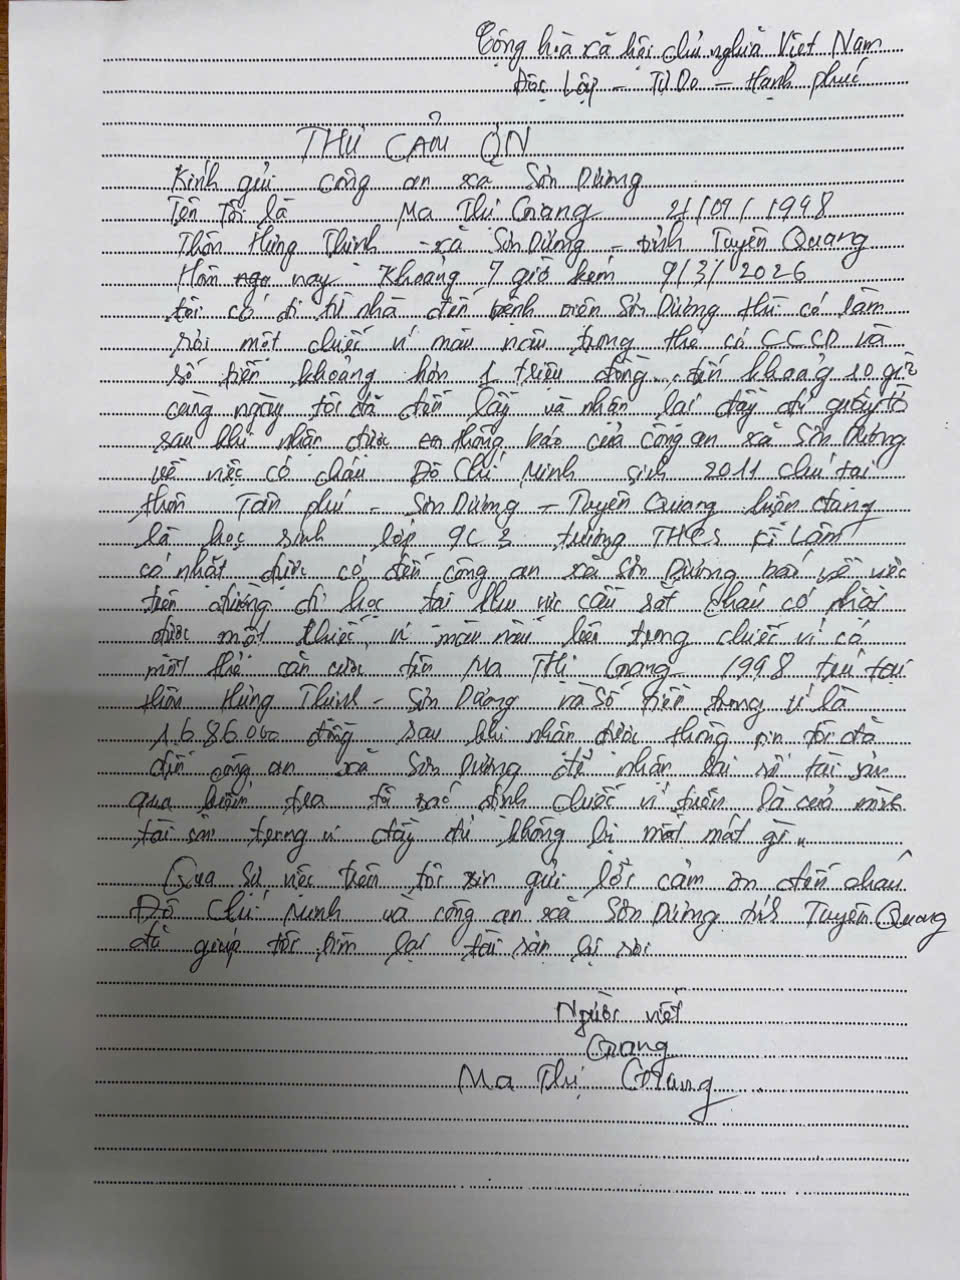 Cộng hòa xã hội chủ nghĩa Việt Nam
Độc Lập - Tự Do - Hạnh phúc
THƯ CẢM ƠN
Kính gửi công an xã Sơn Dương
Tên Tôi là Ma Thị Giang 21/09/1998
Thôn Hưng Thịnh - xã Sơn Dương - tỉnh Tuyên Quang
Hôm nay Khoảng 7 giờ kém 9/3/2026
tôi có đi từ nhà đến bệnh viện Sơn Dương thì có làm
rơi một chiếc ví màu nâu trong thẻ có CCCD và
số tiền khoảng hơn 1 triệu đồng, đến khoảng 10 giờ
cùng ngày tôi đã đến lấy và nhận lại đầy đủ giấy tờ
sau khi nhận được thông báo của công an xã Sơn Dương
về việc có cháu Đỗ Chí Minh sinh 2011 chú tại
thôn Tân phú - Sơn Dương - Tuyên Quang hiện đang
là học sinh lớp 9C3 trường THCS Kì Lâm
có nhặt được có đến công an xã Sơn Dương báo về việc
trên đường đi học tại khu vực cầu sắt cháu có nhặt
được một chiếc ví màu nâu bên trong chiếc ví có
một thẻ căn cước tên Ma Thị Giang 1998 trú tại
thôn Hưng Thịnh - Sơn Dương và số tiền trong ví là
1.686.000 đồng sau khi nhận được thông tin tôi đã
đến công an xã Sơn Dương để nhận lại số tài sản
qua kiểm tra tôi xác định chiếc ví trên là của mình
tài sản trong ví đầy đủ không bị mất mát gì..
Qua sự việc trên tôi xin gửi lời cảm ơn đến cháu
Đỗ Chí Minh và công an xã Sơn Dương tỉnh Tuyên Quang
đã giúp tôi tìm lại tài sản bị rơi
Người viết
Giang
Ma Thị Giang